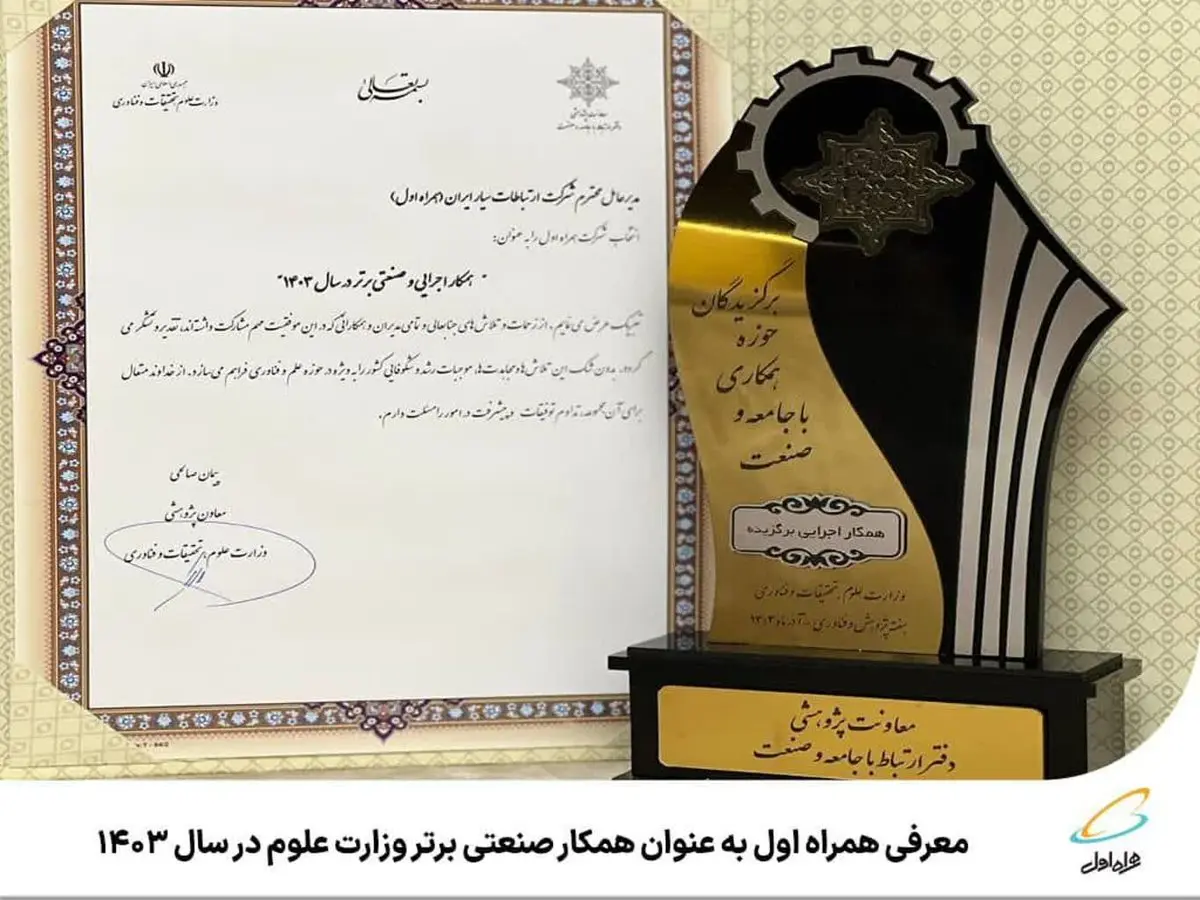 بسمه تعالی
جمهوری اسلامی ایران
وزارت علوم، تحقیقات و فناوری
معاونت پژوهشی
دفتر ارتباط با جامعه و صنعت
مدیرعامل محترم شرکت ارتباطات سیار ایران (همراه اول)
انتخاب شرکت همراه اول را به عنوان:
"همکار اجرایی و صنعتی برتر در سال ۱۴۰۳"
تبریک عرض می نمایم. از زحمات و تلاش های جنابعالی و تمامی مدیران و همکارانی که در این موفقیت مهم مشارکت داشته اند، تقدیر و تشکر می
گردد. بدون شک این تلاش ها و مجاهدت ها، موجبات رشد و شکوفایی کشور را به ویژه در حوزه علم و فناوری فراهم می سازد. از خداوند متعال
برای آن مجموعه، تداوم توفیقات و پیشرفت در امور را مسئلت دارم.
پیمان صالحی
معاون پژوهشی
وزارت علوم، تحقیقات و فناوری
برگزیدگان
حوزه
همکاری
با جامعه و
صنعت
همکار اجرایی برگزیده
وزارت علوم، تحقیقات و فناوری
هفته پژوهش و فناوری - آذرماه ۱۴۰۳
معاونت پژوهشی
دفتر ارتباط با جامعه و صنعت
معرفی همراه اول به عنوان همکار صنعتی برتر وزارت علوم در سال ۱۴۰۳
همراه اول